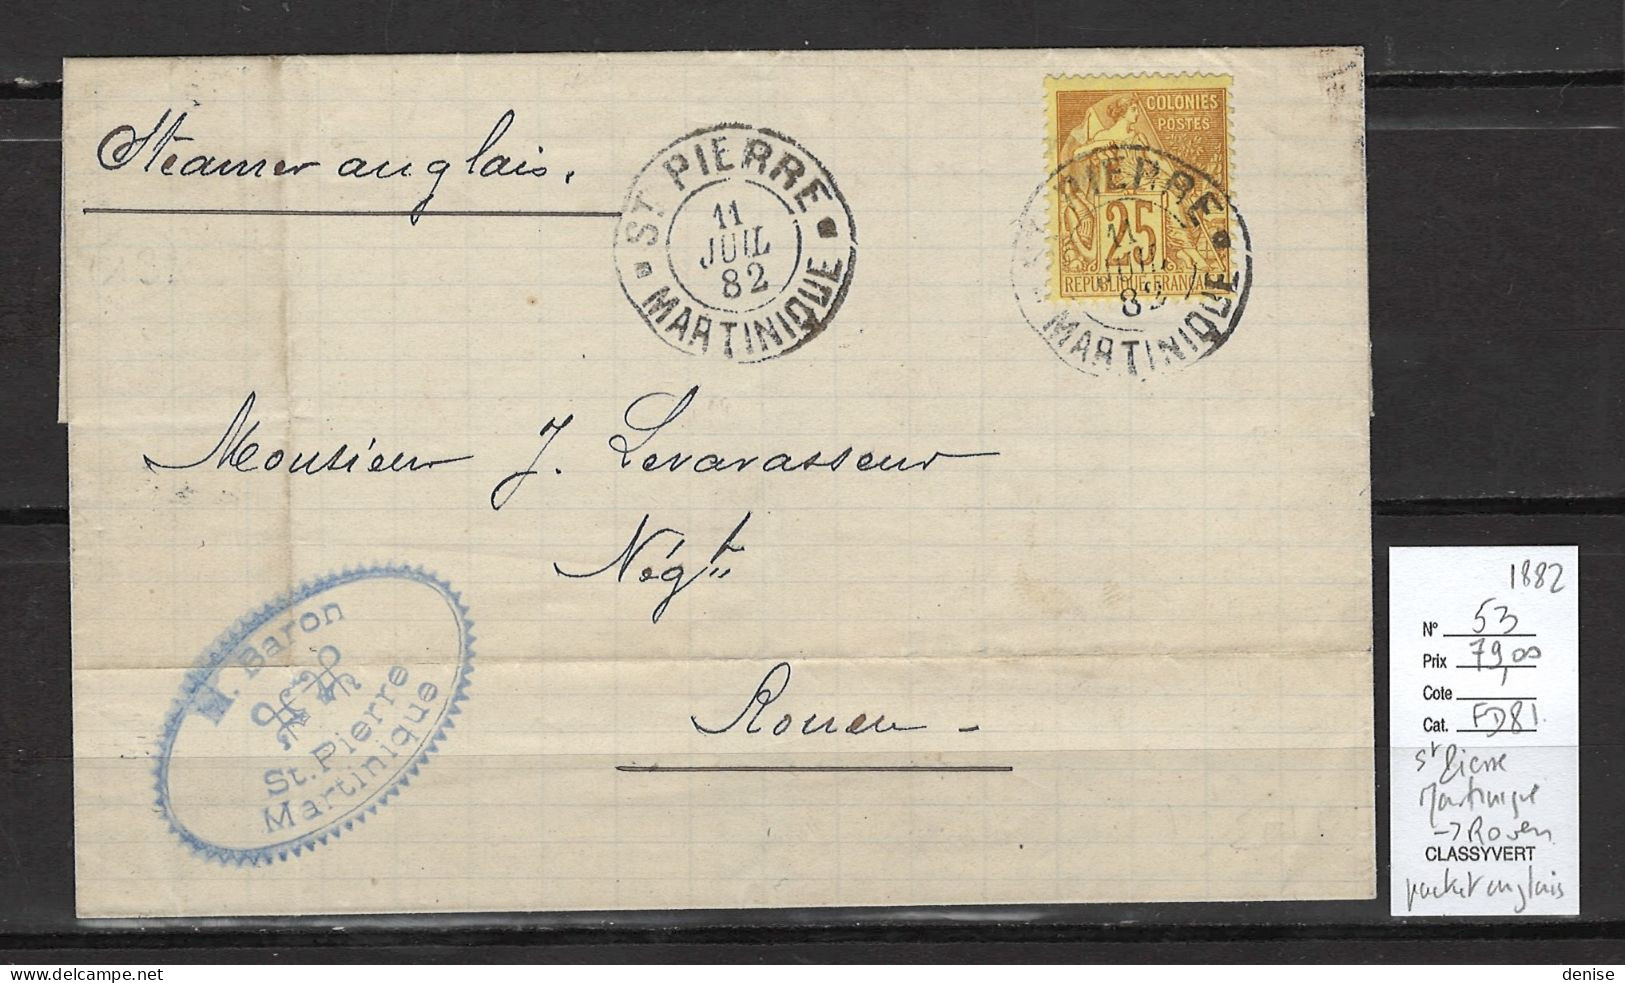 Steamer anglais.
ST PIERRE
11
JUIL
82
MARTINIQUE
COLONIES
POSTES
25
REPUBLIQUE FRANÇAI
ST PIERRE
11
JUIL
82
MARTINIQUE
Monsieur J. Levavasseur
Négt
Rouen -
M. Baron
St. Pierre
Martinique
1882
N° 53
Prix 79,00
Cote
Cat. FD81.
St Pierre
Martinique
-> Rouen
CLASSYVERT
packet anglais
denise